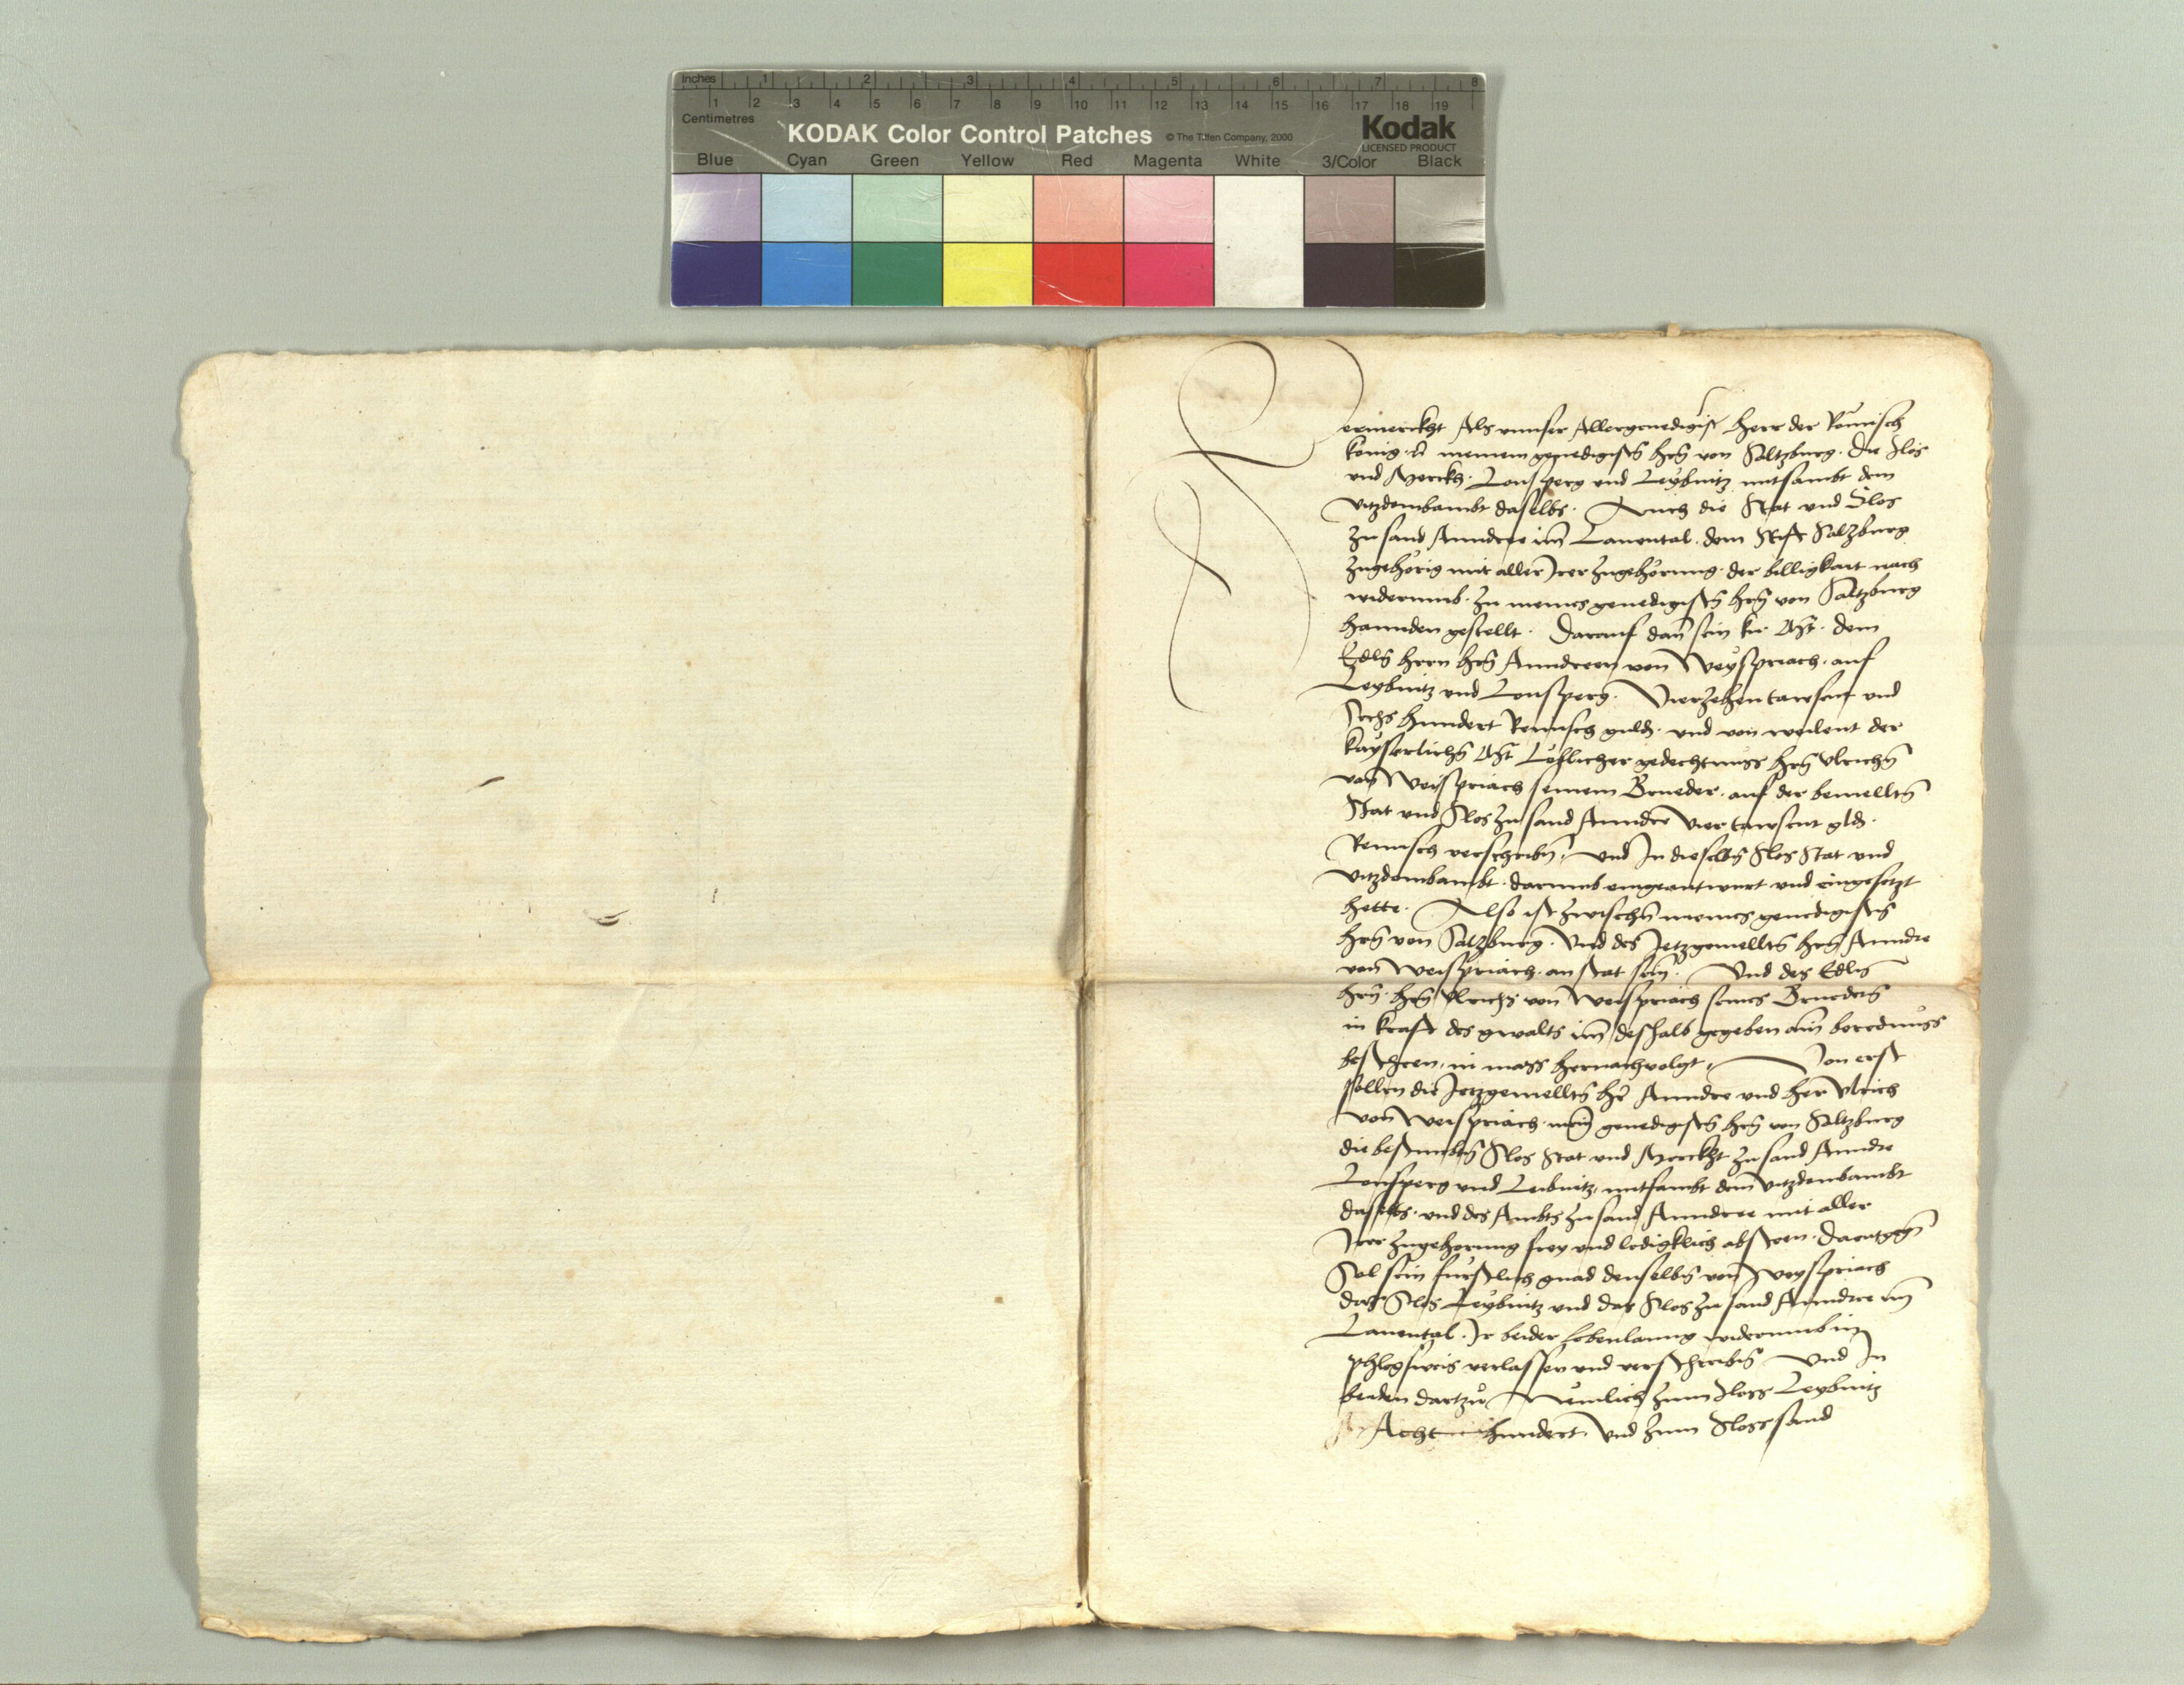 Inches 1 2 3 4 5 6 7 8
1 2 3 4 5 6 7 8 9 10 11 12 13 14 15 16 17 18 19
Centimetres
KODAK Color Control Patches © The Tiffen Company, 2000 Kodak
LICENSED PRODUCT
Blue Cyan Green Yellow Red Magenta White 3/Color Black
Vermerckht Als vnnser Allergenedigist Herr der Römisch
König meinem genedigistn hrn von Saltzburg. Die Slos
vnd Merckh. Lonsperg vnd Leybnitz mitsambt dem
vitzdombambt daselbs. Auch die Stat vnd Slos
zu sand Anndree im Lauental. dem Stift Salzburg
zugehörig mit aller Irer zugehörung. der billigkait nach
widerumb. zu meines genedigistn hrn von Saltzburg
hannden gestellt. Darauf dan sein ku. Mt. dem
Edln herrn hrn Anndreen von Weyspriach. auf
Leybnitz vnd Lonsperg. Vierzehentawsent vnd
Sechs hundert Reinisch guld. vnd von weilent der
kayserlichn Mt Löblicher gedechtnuss hrn Vlrichn
von Weispriach seinem Brueder. auf der bemelltn
Stat vnd Slos zu sand Anndre vier tawsent gld.
Reinisch verschribn. vnd In dieselbn Slos Stat vnd
vitzdombambt. darumb eingeantwurt vnd eingesetzt
hette. Also ist zwischn meines genedigistn
hrn von Salzburg. Vnd des Jetzgemelltn hrn Anndre
von Weispriach. an stat sein. Vnd des Edln
hrn. hrn Vlrichs von Weispriach seines Bruedern
in kraft des gwalts im deshalb gegeben ain berednuss
beschehen, in mass hernachvolgt, Von erst
sollen die Jetzgemelltn hr Anndre vnd her Vlrich
von Weispriach. mein genedigistn hrn von Saltzburg
die bestimbtn Slos Stat vnd Merckht zu sand Anndre
Lonsperg vnd Leibnitz, mitsambt dem vitzdombambt
daselbs. vnd des Ambts zu sand Anndree mit aller
Irer zugehorung frey vnd ledigklich abtreten. Daentgegn
Sol sein furstlich gnad denselbn von Weyspriach
das Slos Leybnitz vnd das Slos zu sand Anndree im
Lauental. Ir beider lebenlanng widerumb in
phlegsweis verlassen vnd verschreibn Vnd In
beiden dartzu Nemlich zum Sloss Leybnitz
Acht hundert Vnd zum Sloss sand